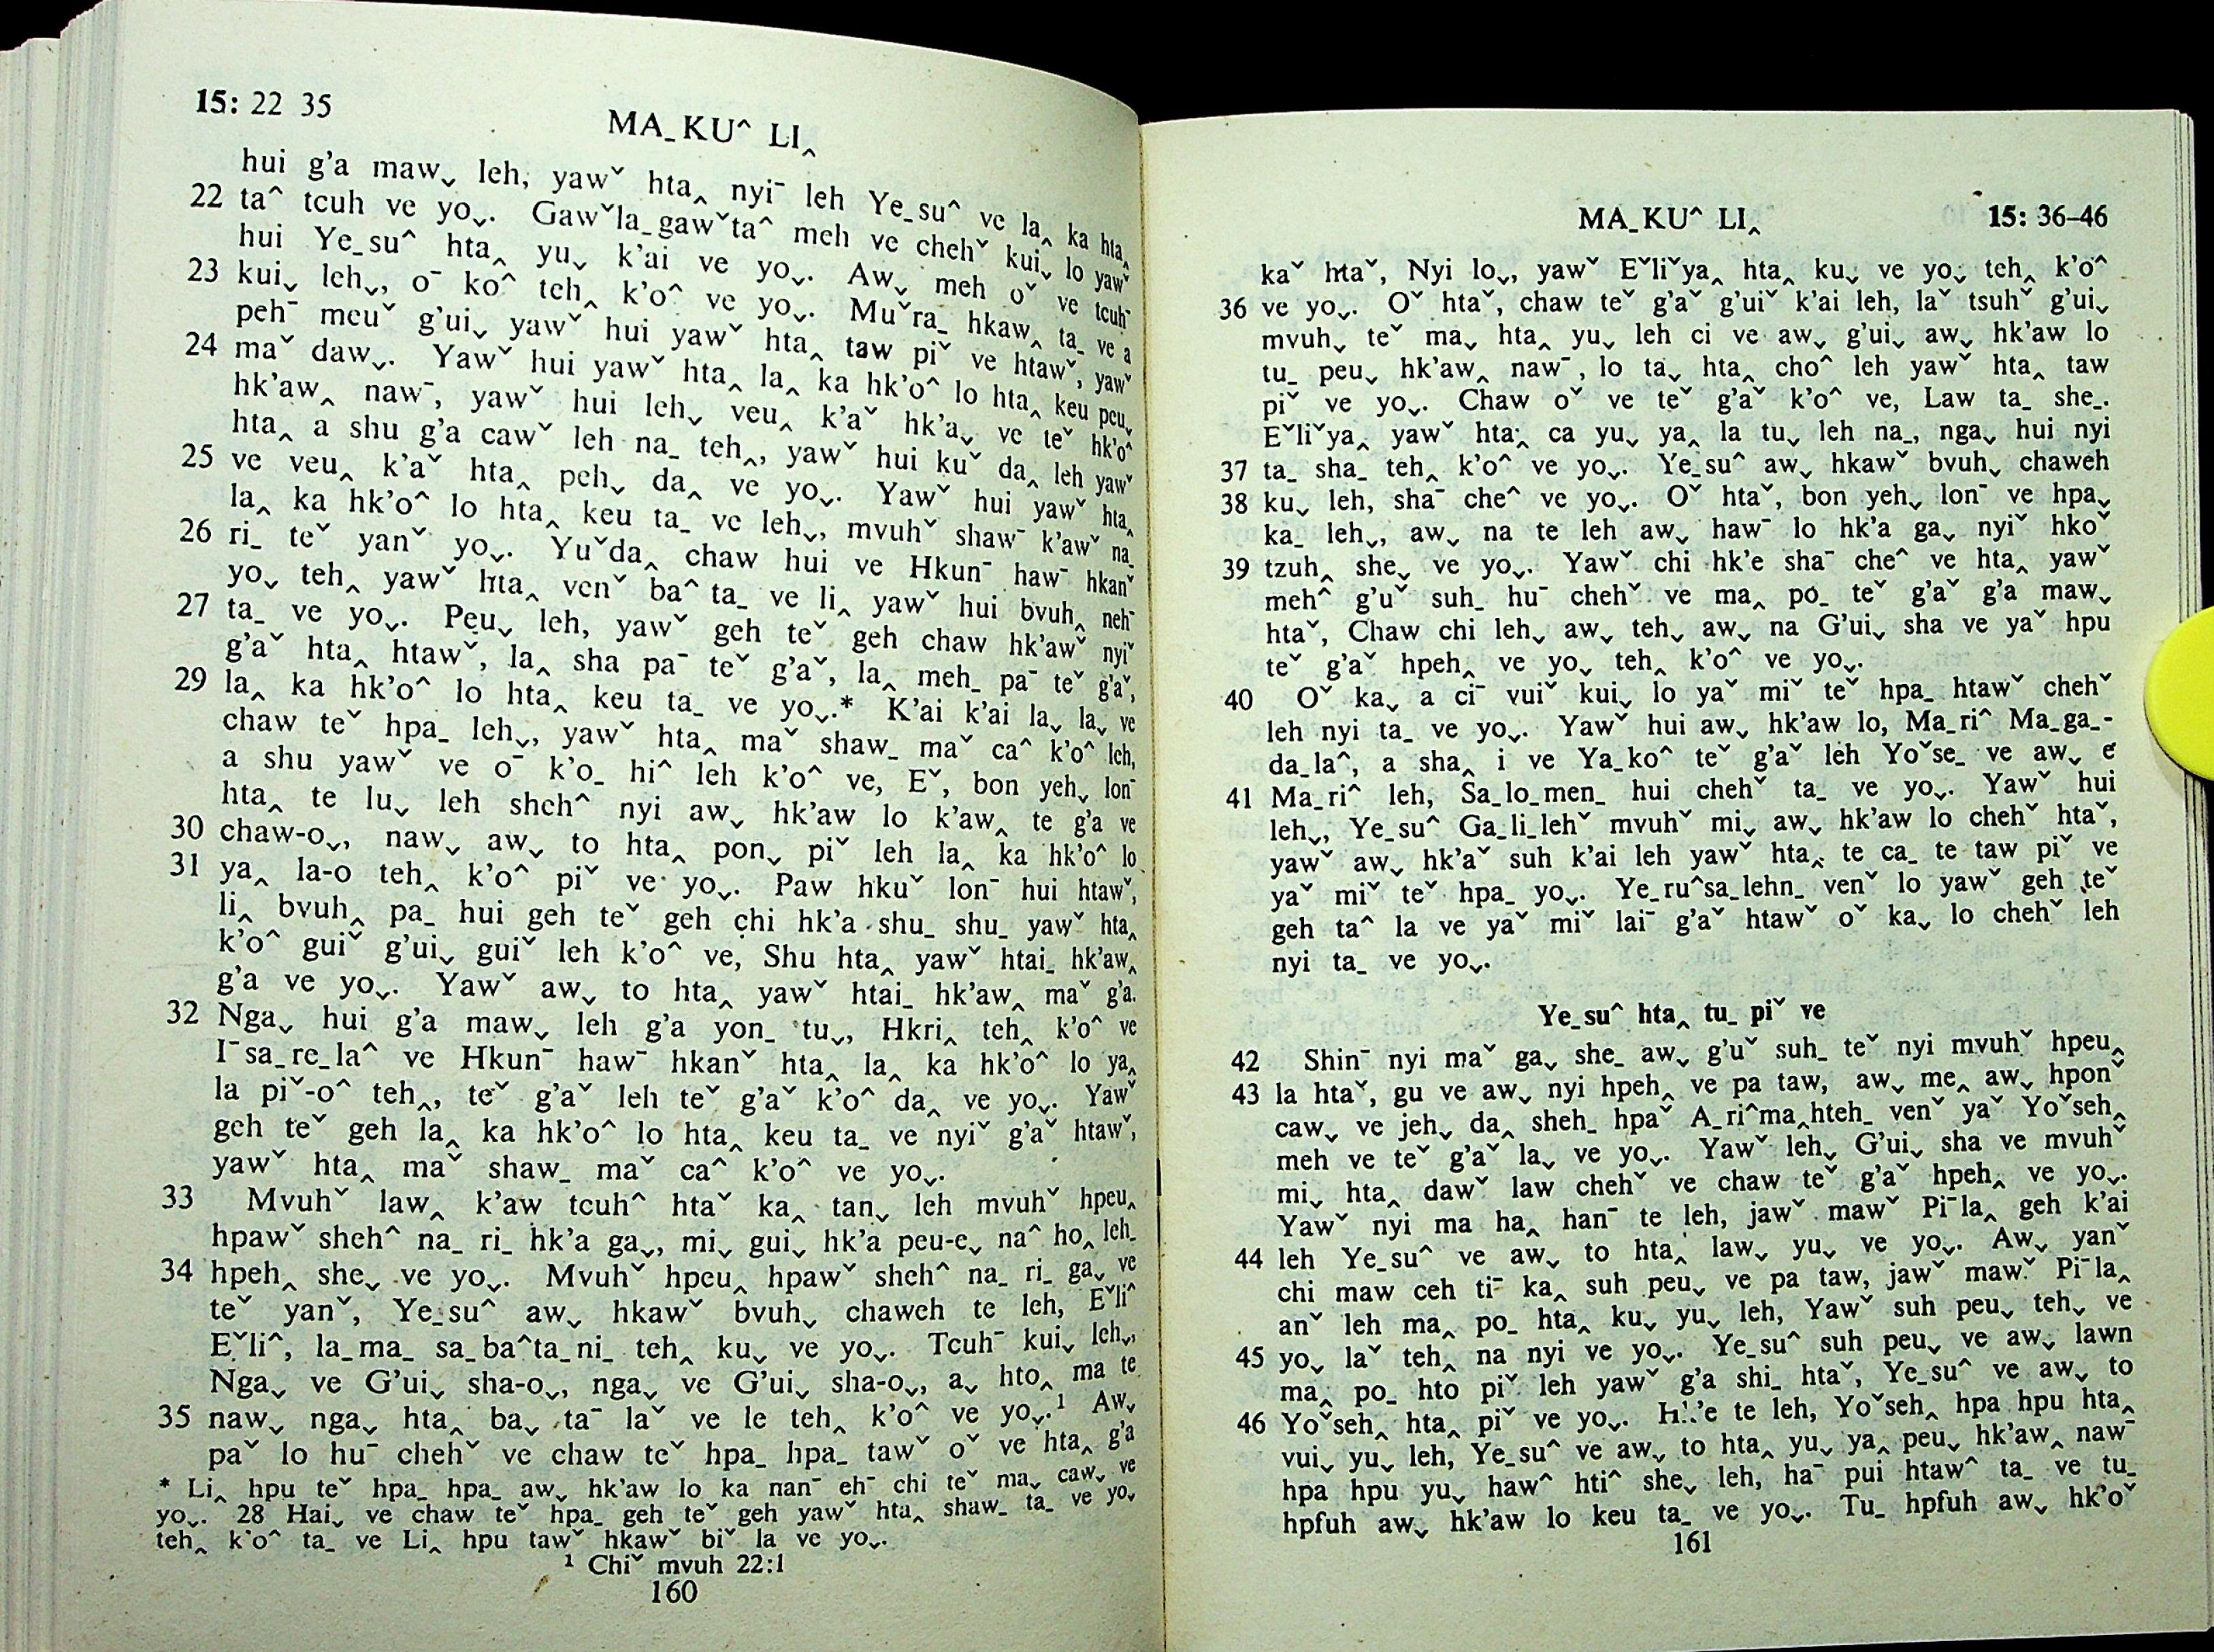 15: 22 35
MA_KU^ LI‸
hui g'a mawˬ leh, yawˇ hta‸ nyi¯ leh Ye_su^ ve la‸ ka hta‸
22 ta^ tcuh ve yoˬ. Gawˇla_gawˇta^ meh ve chehˇ kuiˬ lo yawˇ
hui Ye_su^ hta‸ yuˬ k'ai ve yoˬ. Awˬ meh oˇ ve tcuh¯
23 kuiˬ lehˬ, o¯ ko^ teh‸ k'o^ ve yoˬ. Muˇra_ hkaw‸ ta_ ve a
peh¯ meuˇ g'uiˬ yawˇ hui yawˇ hta‸ taw piˇ ve htawˇ, yawˇ
24 maˇ dawˬ. Yawˇ hui yawˇ hta‸ la‸ ka hk'o^ lo hta‸ keu peuˬ
hk'aw‸ naw¯, yawˇ hui lehˬ veu‸ k'aˇ hk'aˬ ve teˇ hk'o^
hta‸ a shu g'a cawˇ leh na_ teh‸, yawˇ hui kuˇ da‸ leh yawˇ
25 ve veu‸ k'aˇ hta‸ pehˬ da‸ ve yoˬ. Yawˇ hui yawˇ hta‸
la‸ ka hk'o^ lo hta‸ keu ta_ ve lehˬ, mvuhˇ shaw¯ k'awˇ na_
26 ri_ teˇ yanˇ yoˬ. Yuˇda‸ chaw hui ve Hkun¯ haw¯ hkanˇ
yoˬ teh‸ yawˇ hta‸ venˇ ba^ ta_ ve li‸ yawˇ hui bvuh‸ neh¯
27 ta_ ve yoˬ. Peuˬ leh, yawˇ geh teˇ geh chaw hk'awˇ nyiˇ
g'aˇ hta‸ htawˇ, la‸ sha pa¯ teˇ g'aˇ, la‸ meh_ pa¯ teˇ g'aˇ,
29 la‸ ka hk'o^ lo hta‸ keu ta_ ve yoˬ.* K'ai k'ai laˬ laˬ ve
chaw teˇ hpa_ lehˬ, yawˇ hta‸ maˇ shaw_ maˇ ca^ k'o^ leh,
a shu yawˇ ve o¯ k'o_ hi^ leh k'o^ ve, Eˇ, bon yehˬ lon¯
hta‸ te luˬ leh sheh^ nyi awˬ hk'aw lo k'aw‸ te g'a ve
30 chaw-oˬ, nawˬ awˬ to hta‸ ponˬ piˇ leh la‸ ka hk'o^ lo
31 ya‸ la-o teh‸ k'o^ piˇ ve yoˬ. Paw hkuˇ lon¯ hui htawˇ,
li‸ bvuh‸ pa_ hui geh teˇ geh chi hk'a shu_ shu_ yawˇ hta‸
k'o^ guiˇ g'uiˬ guiˇ leh k'o^ ve, Shu hta‸ yawˇ htai_ hk'aw‸
g'a ve yoˬ. Yawˇ awˬ to hta‸ yawˇ htai_ hk'aw‸ maˇ g'a.
32 Ngaˬ hui g'a mawˬ leh g'a yon_ tuˬ, Hkri‸ teh‸ k'o^ ve
I¯sa_re_la^ ve Hkun¯ haw¯ hkanˇ hta‸ la‸ ka hk'o^ lo ya‸
la piˇ-o^ teh‸, teˇ g'aˇ leh teˇ g'aˇ k'o^ da‸ ve yoˬ. Yawˇ
geh teˇ geh la‸ ka hk'o^ lo hta‸ keu ta_ ve nyiˇ g'aˇ htawˇ,
yawˇ hta‸ maˇ shaw_ maˇ ca^ k'o^ ve yoˬ.
33 Mvuhˇ law‸ k'aw tcuh^ htaˇ ka‸ tanˬ leh mvuhˇ hpeu‸
hpawˇ sheh^ na_ ri_ hk'a gaˬ, miˬ guiˬ hk'a peu-eˬ na^ ho‸ leh_
34 hpeh‸ sheˬ ve yoˬ. Mvuhˇ hpeu‸ hpawˇ sheh^ na_ ri_ gaˬ ve
teˇ yanˇ, Ye_su^ awˬ hkawˇ bvuhˬ chaweh te leh, Eˇli^
Eˇli^, la_ma_ sa_ba^ta_ni_ teh‸ kuˬ ve yoˬ. Tcuh¯ kuiˬ lehˬ,
Ngaˬ ve G'uiˬ sha-oˬ, ngaˬ ve G'uiˬ sha-oˬ, aˬ hto‸ ma te
35 nawˬ ngaˬ hta‸ baˬ ta¯ laˇ ve le teh‸ k'o^ ve yoˬ.¹ Awˬ
paˇ lo hu¯ chehˇ ve chaw teˇ hpa_ hpa_ tawˇ oˇ ve hta‸ g'a
* Li‸ hpu teˇ hpa_ hpa_ awˬ hk'aw lo ka nan¯ eh¯ chi teˇ maˬ cawˬ ve
yoˬ. 28 Haiˬ ve chaw teˇ hpa_ geh teˇ geh yawˇ hta‸ shaw_ ta_ ve yoˬ
teh‸ k'o^ ta_ ve Li‸ hpu tawˇ hkawˇ biˇ la ve yoˬ.
¹ Chiˇ mvuh 22:1
160
MA_KU^ LI‸
15: 36–46
kaˇ htaˇ, Nyi loˬ, yawˇ Eˇliˇya‸ hta‸ kuˬ ve yoˬ teh‸ k'o^
36 ve yoˬ. Oˇ htaˇ, chaw teˇ g'aˇ g'uiˇ k'ai leh, laˇ tsuhˇ g'uiˬ
mvuhˬ teˇ maˬ hta‸ yuˬ leh ci ve awˬ g'uiˬ awˬ hk'aw lo
tu_ peuˬ hk'aw‸ naw¯, lo taˬ hta‸ cho^ leh yawˇ hta‸ taw
piˇ ve yoˬ. Chaw oˇ ve teˇ g'aˇ k'o^ ve, Law ta_ she_.
Eˇliˇya‸ yawˇ hta‸ ca yuˬ ya‸ la tuˬ leh na_, ngaˬ hui nyi
37 ta_ sha_ teh‸ k'o^ ve yoˬ. Ye_su^ awˬ hkawˇ bvuhˬ chaweh
38 kuˬ leh, sha¯ che^ ve yoˬ. Oˇ htaˇ, bon yehˬ lon¯ ve hpaˬ
ka_ lehˬ, awˬ na te leh awˬ haw¯ lo hk'a gaˬ nyiˇ hkoˇ
39 tzuh‸ sheˬ ve yoˬ. Yawˇ chi hk'e sha¯ che^ ve hta‸ yawˇ
meh^ g'uˇ suh_ hu¯ chehˇ ve ma‸ po_ teˇ g'aˇ g'a mawˬ
htaˇ, Chaw chi lehˬ awˬ tehˬ awˬ na G'uiˬ sha ve yaˇ hpu
teˇ g'aˇ hpeh‸ ve yoˬ teh‸ k'o^ ve yoˬ.
40 Oˇ kaˬ a ci¯ vuiˇ kuiˬ lo yaˇ miˇ teˇ hpa_ htawˇ chehˇ
leh nyi ta_ ve yoˬ. Yawˇ hui awˬ hk'aw lo, Ma_ri^ Ma_ga_-
da_la^, a sha‸ i ve Ya_ko^ teˇ g'aˇ leh Yoˇse_ ve awˬ e
41 Ma_ri^ leh, Sa_lo_men_ hui chehˇ ta_ ve yoˬ. Yawˇ hui
lehˬ, Ye_su^ Ga_li_lehˇ mvuhˇ miˬ awˬ hk'aw lo chehˇ htaˇ,
yawˇ awˬ hk'aˇ suh k'ai leh yawˇ hta‸ te ca_ te taw piˇ ve
yaˇ miˇ teˇ hpa_ yoˬ. Ye_ru^sa_lehn_ venˇ lo yawˇ geh teˇ
geh ta^ la ve yaˇ miˇ lai¯ g'aˇ htawˇ oˇ kaˬ lo chehˇ leh
nyi ta_ ve yoˬ.
Ye_su^ hta‸ tu_ piˇ ve
42 Shin¯ nyi maˇ gaˬ she_ awˬ g'uˇ suh_ teˇ nyi mvuhˇ hpeu‸
43 la htaˇ, gu ve awˬ nyi hpeh‸ ve pa taw, awˬ me‸ awˬ hponˇ
cawˬ ve jehˬ da‸ sheh_ hpaˇ A_ri^ma‸hteh_ venˇ yaˇ Yoˇseh‸
meh ve teˇ g'aˇ laˬ ve yoˬ. Yawˇ lehˬ G'uiˬ sha ve mvuhˇ
miˬ hta‸ dawˇ law chehˇ ve chaw teˇ g'aˇ hpeh‸ ve yoˬ.
Yawˇ nyi ma ha‸ han¯ te leh, jawˇ mawˇ Pi¯la‸ geh k'ai
44 leh Ye_su^ ve awˬ to hta‸ lawˬ yuˬ ve yoˬ. Awˬ yanˇ
chi maw ceh ti¯ ka‸ suh peuˬ ve pa taw, jawˇ mawˇ Pi¯la‸
anˇ leh ma‸ po_ hta‸ kuˬ yuˬ leh, Yawˇ suh peuˬ tehˬ ve
45 yoˬ laˇ teh‸ na nyi ve yoˬ. Ye_su^ suh peuˬ ve awˬ lawn
ma‸ po_ hto piˇ leh yawˇ g'a shi_ htaˇ, Ye_su^ ve awˬ to
46 Yoˇseh‸ hta‸ piˇ ve yoˬ. te leh, Yoˇseh‸ hpa hpu hta‸
vuiˬ yuˬ leh, Ye_su^ ve awˬ to hta‸ yuˬ ya‸ peuˬ hk'aw‸ naw¯
hpa hpu yuˬ haw^ hti^ sheˬ leh, ha¯ pui htaw^ ta_ ve tu_
hpfuh awˬ hk'aw lo keu ta_ ve yoˬ. Tu_ hpfuh awˬ hk'oˇ
161